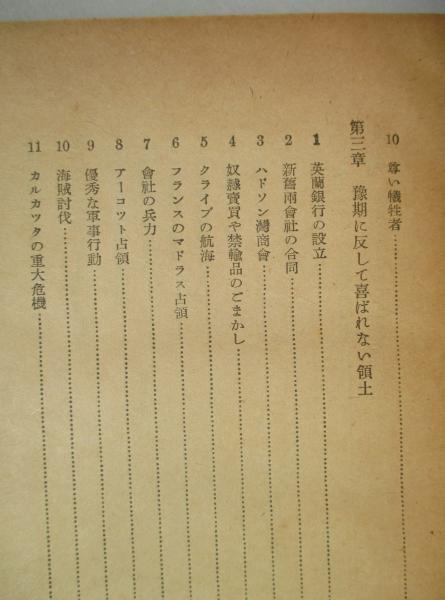 10 尊い犠牲者
第三章 豫期に反して喜ばれない領土
1 英蘭銀行の設立
2 新舊兩會社の合同
3 ハドソン灣商會
4 奴隷賣買や禁輸品のごまかし
5 クライブの航海
6 フランスのマドラス占領
7 會社の兵力
8 アーコット占領
9 優秀な軍事行動
10 海賊討伐
11 カルカツタの重大危機